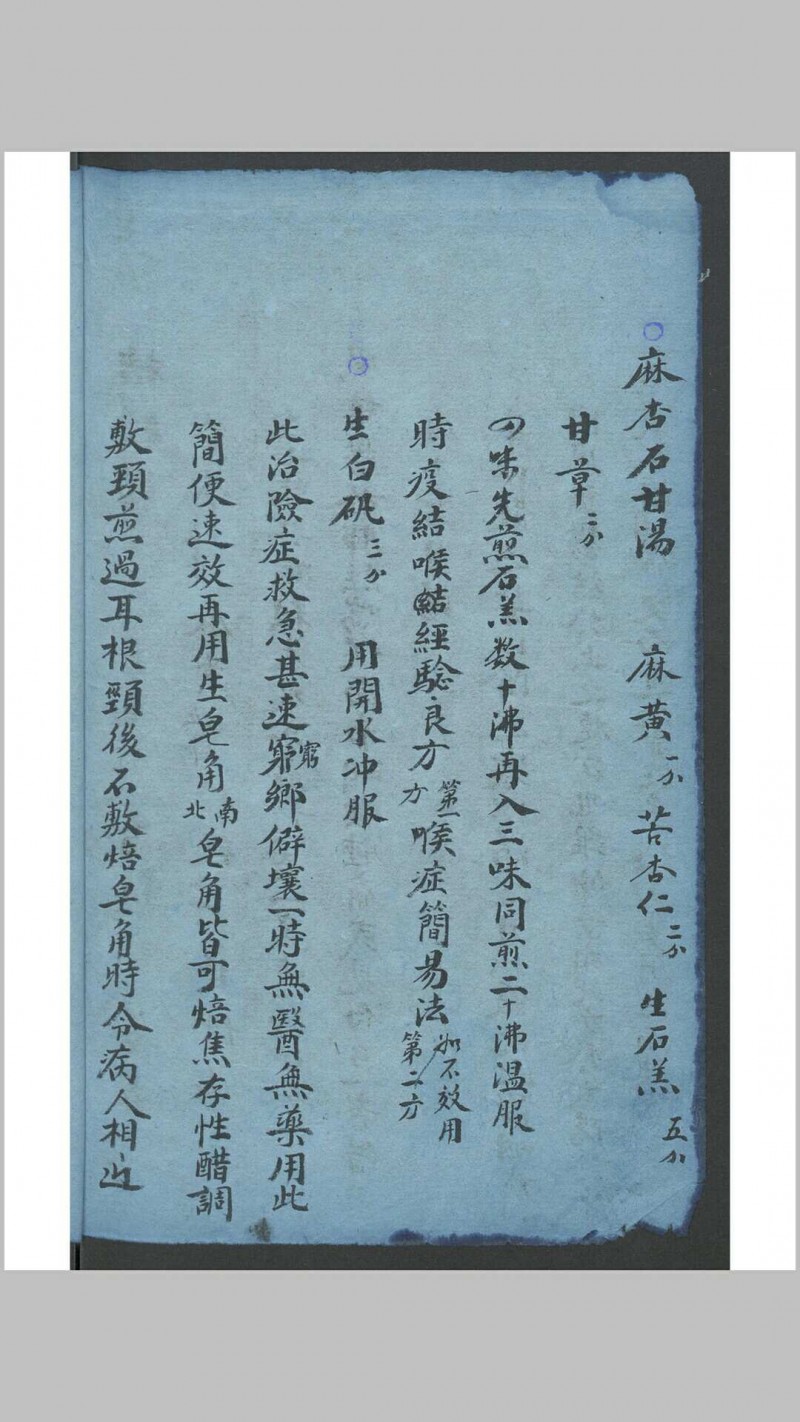 麻杏石甘湯 麻黄一分 苦杏仁二分 生石羔五分
甘草二分
四味先煎石羔数十沸再入三味同煎二十沸温服
時疫結喉結經驗良方 第一方 喉症簡易法 如不效用第二方
生白矾三分 用開水冲服
此治險症救急甚速窮窮鄉僻壤一時無醫無藥用此
簡便速效再用生皂角南北皂角皆可焙焦存性醋調
敷頸煎過耳根頸後不敷焙皂角時令病人相近